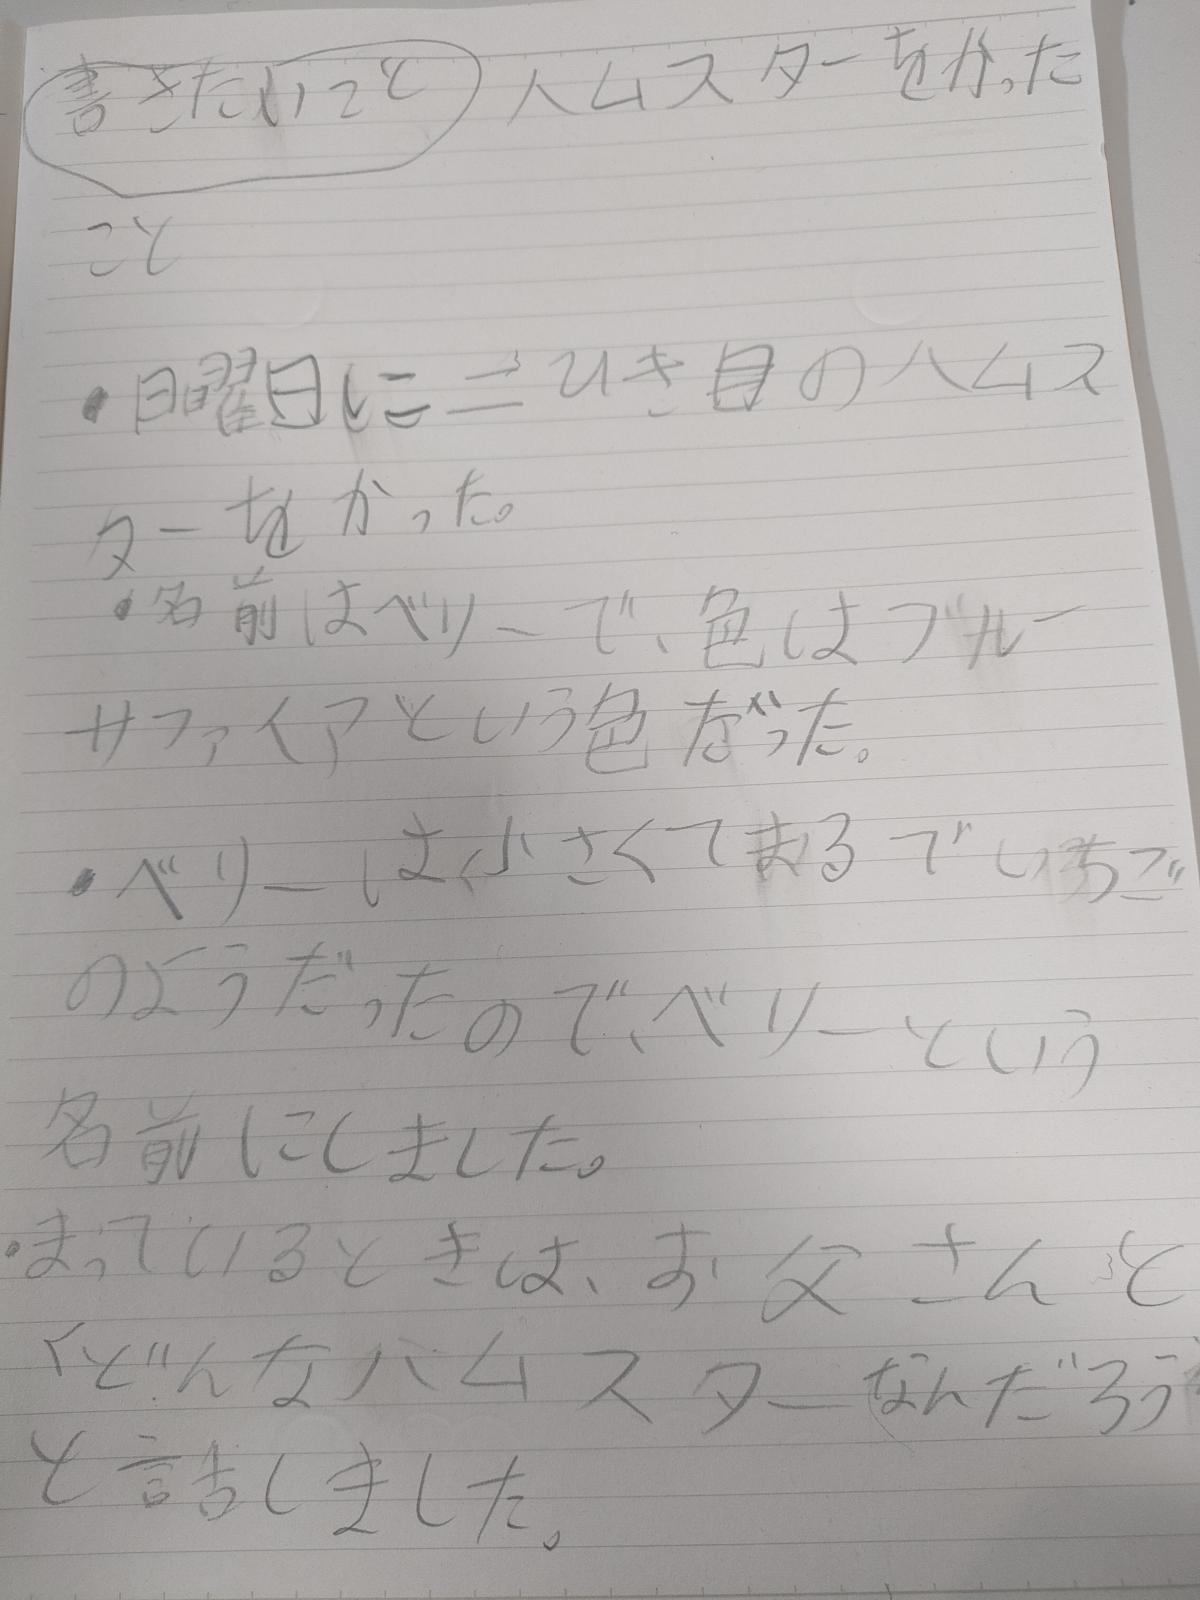 書きたいこと ハムスターをかった
こと
・日曜日に二ひき目のハムス
ターをかった。
・名前はベリーで、色はブルー
サファイアという色だった。
・ベリーは、小さくてまるでいちご
のようだったので、ベリーという
名前にしました。
・まっているときは、お父さんと
「どんなハムスターなんだろう」
と話しました。